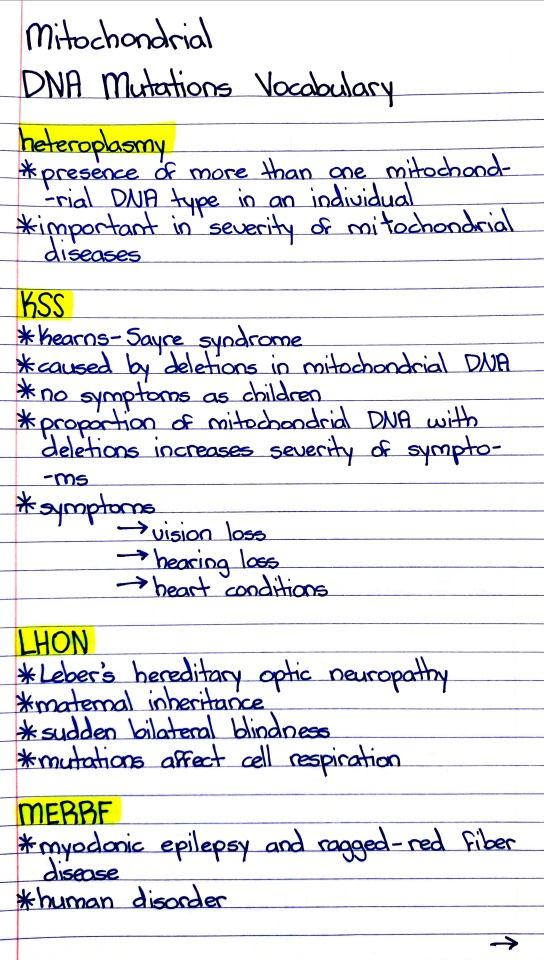 Mitochondrial
DNA Mutations Vocabulary
heteroplasmy
*presence of more than one mitochond-
-rial DNA type in an individual
*important in severity of mitochondrial
diseases
KSS
*Kearns-Sayre syndrome
*caused by deletions in mitochondrial DNA
*no symptoms as children
*proportion of mitochondrial DNA with
deletions increases severity of sympto-
-ms
*symptoms
→vision loss
→hearing loss
→heart conditions
LHON
*Leber's hereditary optic neuropathy
*maternal inheritance
*sudden bilateral blindness
*mutations affect cell respiration
MERRF
*myoclonic epilepsy and ragged-red fiber
disease
*human disorder
→